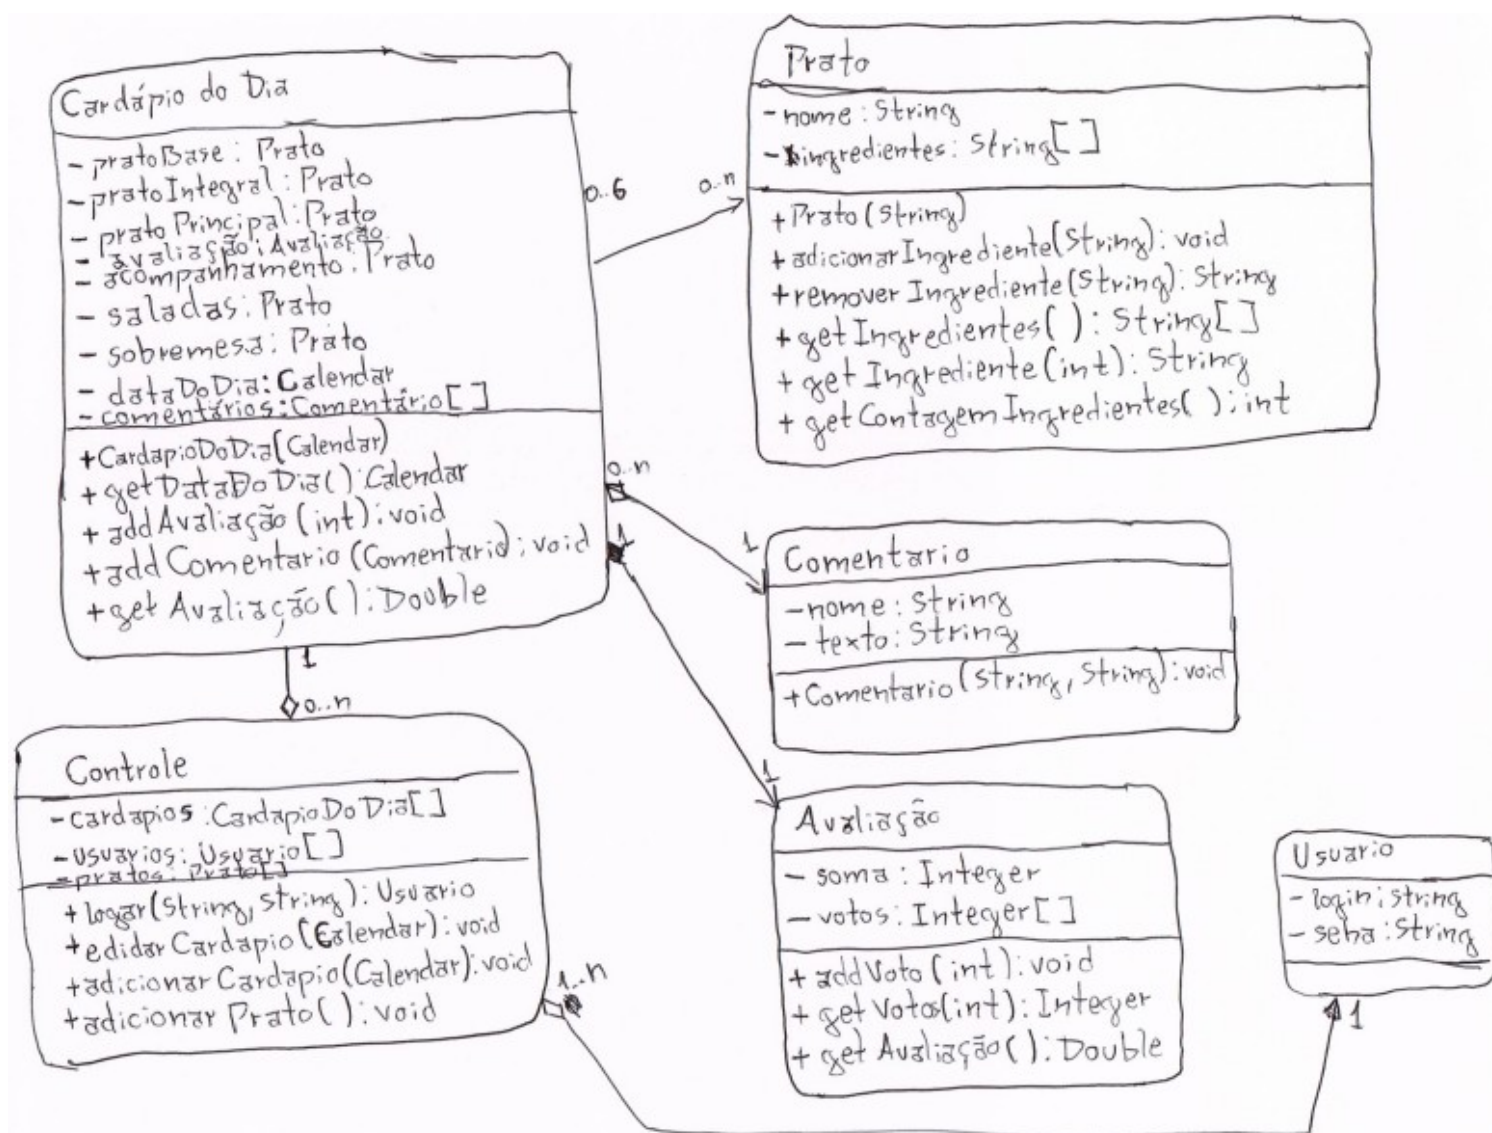 Cardápio do Dia
- pratoBase: Prato
- pratoIntegral: Prato
- pratoPrincipal: Prato
- avaliação: Avaliação
- acompanhamento: Prato
- saladas: Prato
- sobremesa: Prato
- dataDoDia: Calendar
- comentários: Comentário[]
+ CardapioDoDia(Calendar)
+ getDataDoDia() Calendar
+ addAvaliação(int): void
+ addComentario(Comentario): void
+ getAvaliação(): Double
0..6
0..n
Prato
- nome: String
- ingredientes: String[]
+ Prato(String)
+ adicionarIngrediente(String): void
+ removerIngrediente(String): String
+ getIngredientes(): String[]
+ getIngrediente(int): String
+ getContagemIngredientes(): int
0..n
1
1
1
Comentario
- nome: String
- texto: String
+ Comentario(String, String): void
1
0..n
Controle
- cardapios: CardapioDoDia[]
- usuarios: Usuario[]
- pratos: Prato[]
+ logar(String, String): Usuario
+ edidarCardapio(Calendar): void
+ adicionarCardapio(Calendar): void
+ adicionarPrato(): void
1..n
Avaliação
- soma: Integer
- votos: Integer[]
+ addVoto(int): void
+ getVotos(int): Integer
+ getAvaliação(): Double
Usuario
- login: String
- seha: String
1